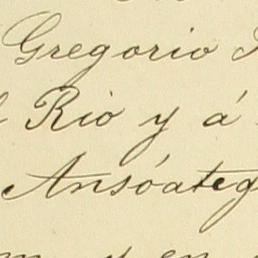 Gregorio
Rio y á
Ansóateg
y en